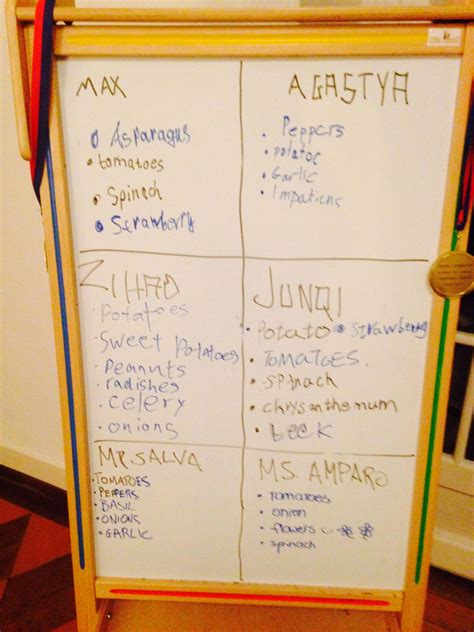 MAX
• Asparagus
• tomatoes
• Spinach
• Strawberry
AGASTYA
• Peppers
• potatoe
• Garlic
• Impatiens
ZIHAO
• Potatoes
• Sweet potatoes
• Peanuts
• radishes
• celery
• onions
JUNQI
• Potato • strawberry
• TOMATOES.
• spinach
• chrysanthemum
• beck
MR SALVA
• TOMATOES
• PEPPERS
• BASIL
• ONIONS
• GARLIC
MS. AMPARO
• tomatoes
• onion
• flowers
• spinach